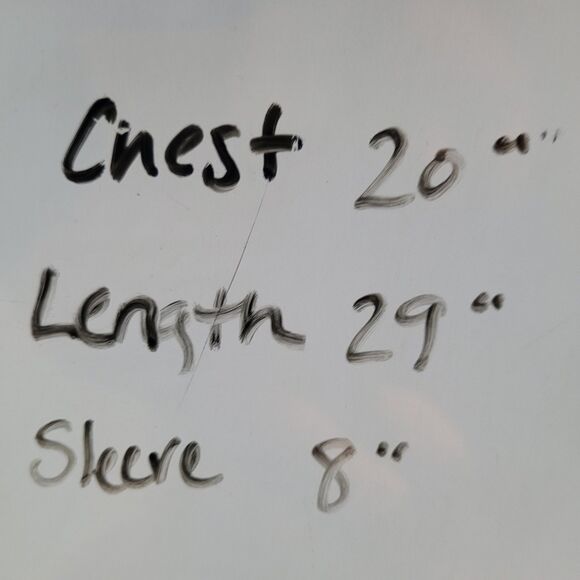 Chest 20"
Length 29"
Sleeve 8"